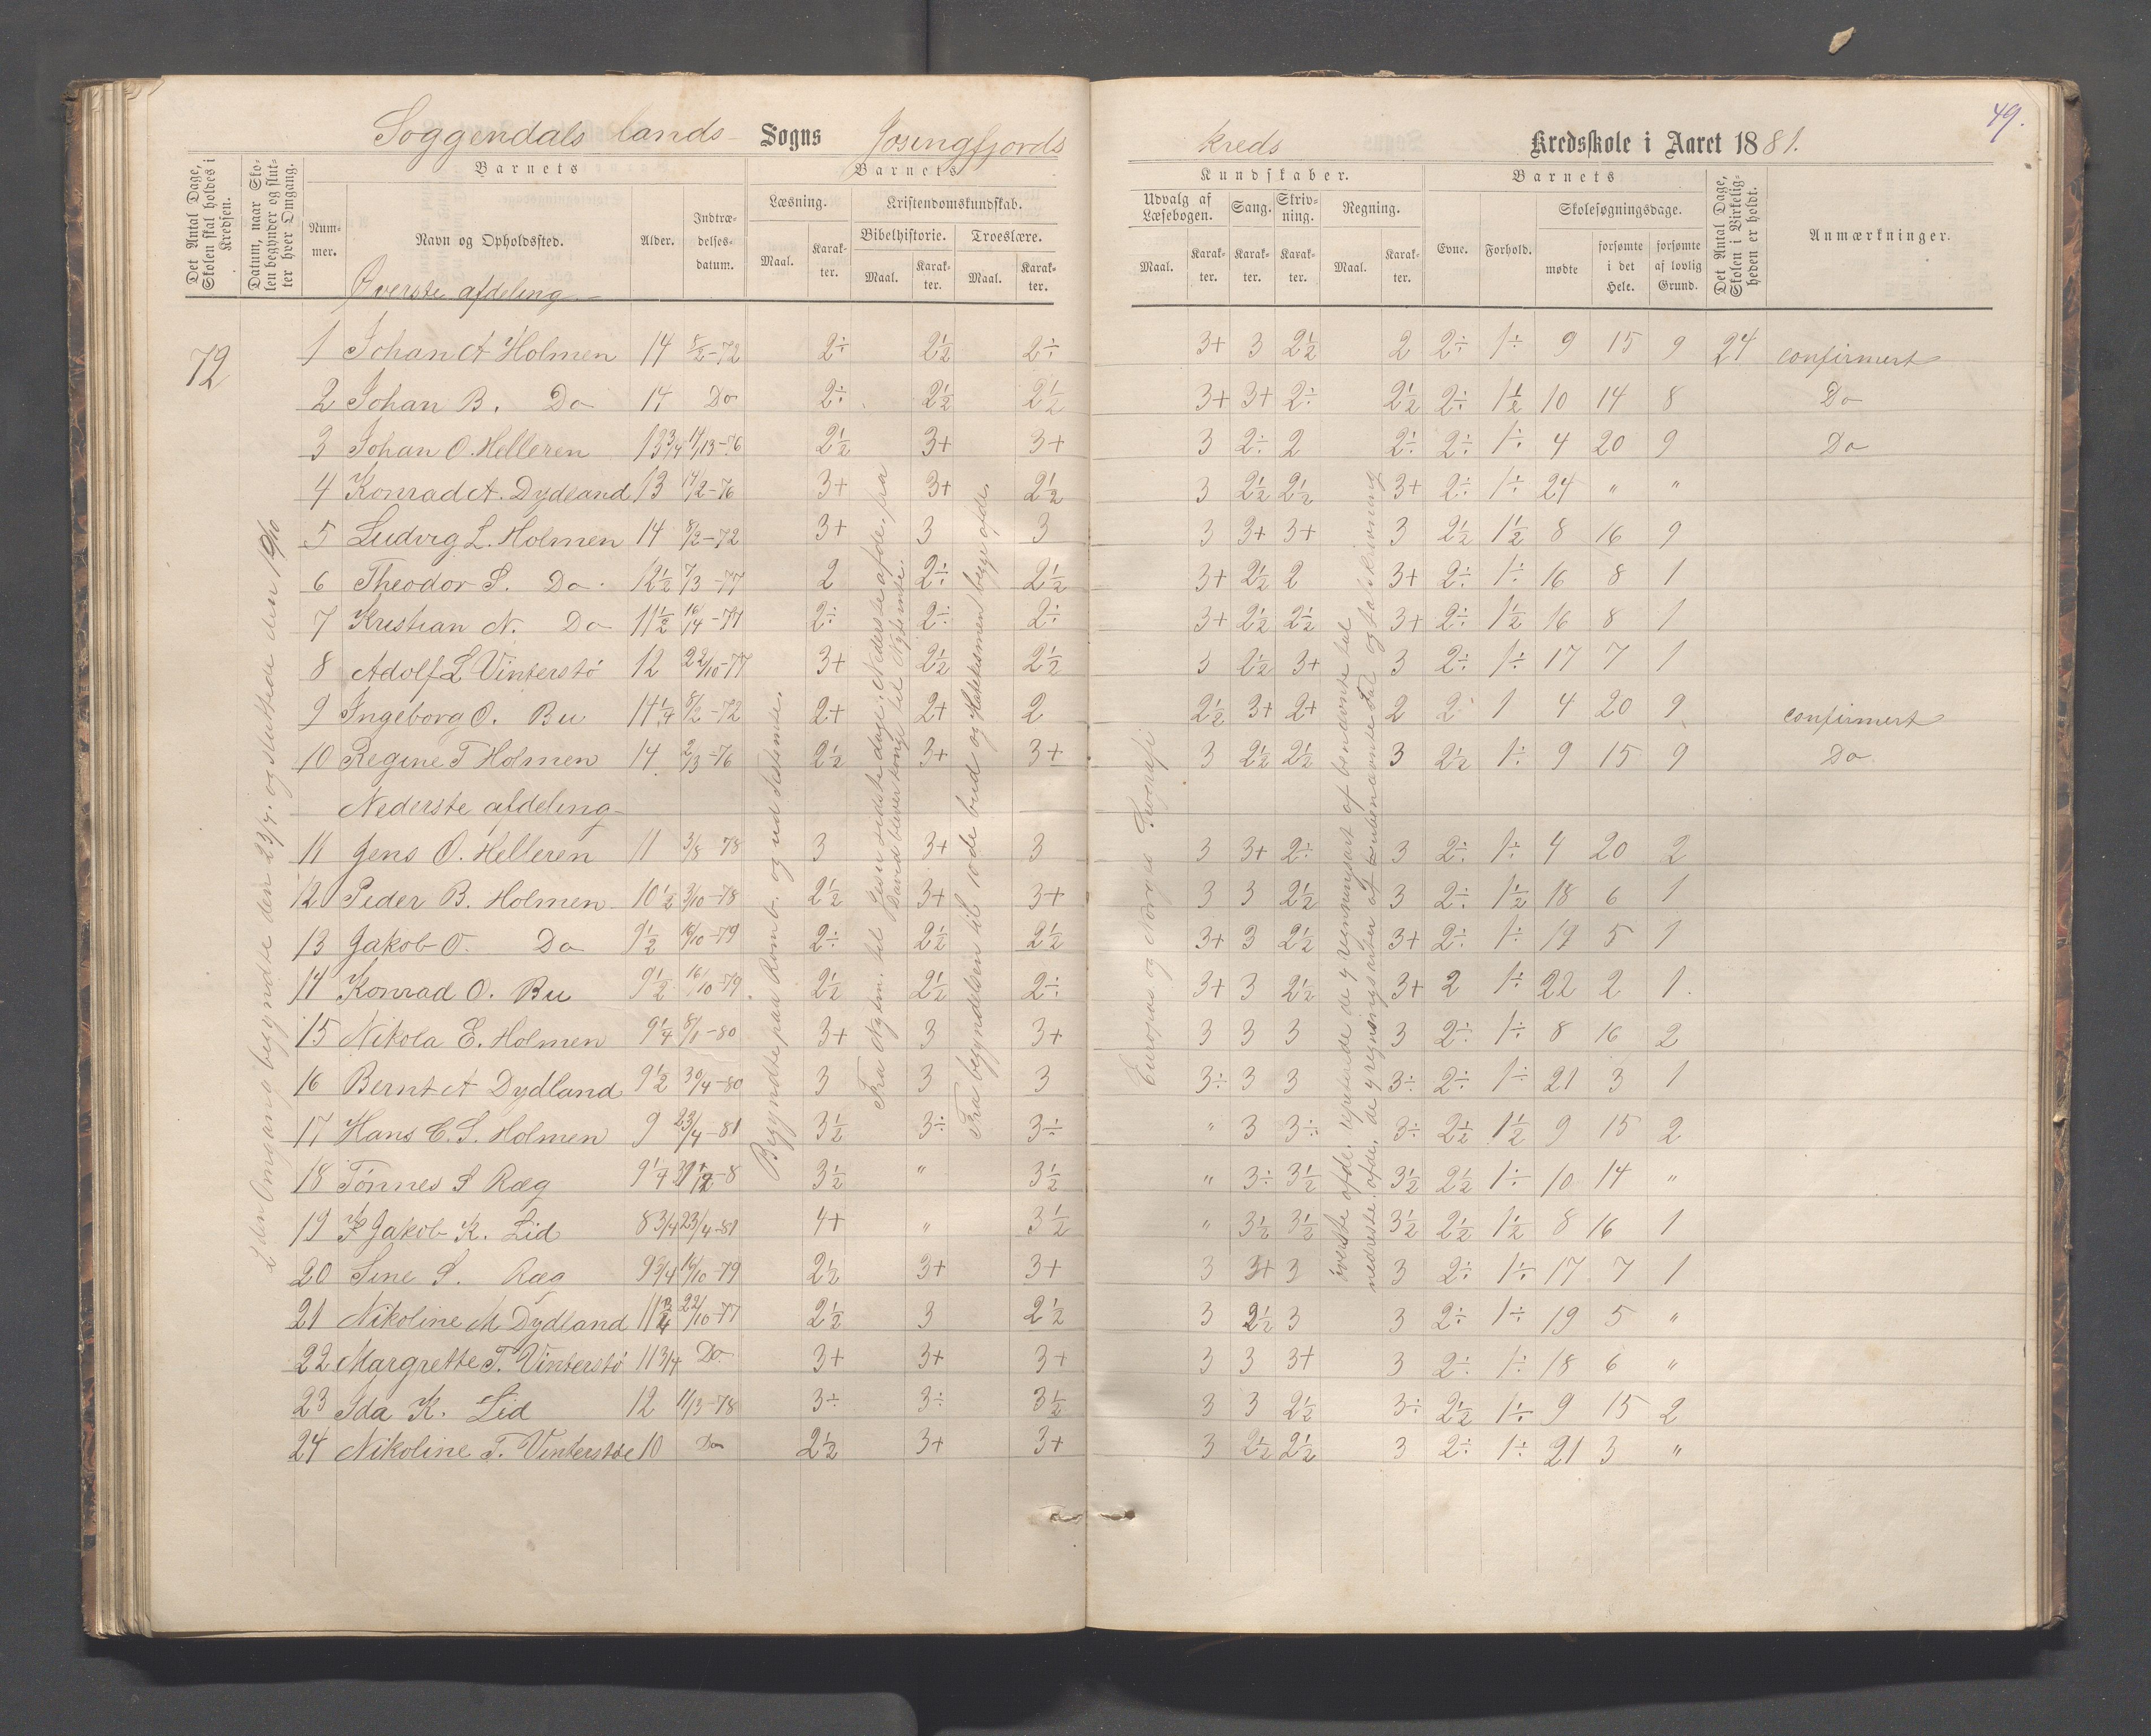 49.
Soggendals lands- Sogns Jøsingfjords kreds Kredsskole i Aaret 1881.
Det Antal Dage, Skolen skal holdes i Kredsen.
Datum, naar Skolen begynder og slutter hver Omgang.
Barnets
Nummer.
Navn og Opholdssted.
Alder.
Indtrædelsesdatum.
Barnets Kundskaber.
Læsning. Maal. Karakter.
Kristendomskundskab.
Bibelhistorie. Maal. Karakter.
Troeslære. Maal. Karakter.
Udvalg af Læsebogen. Maal. Karakter.
Sang. Karakter.
Skrivning. Karakter.
Regning. Maal. Karakter.
Barnets
Evne.
Forhold.
Skolesøgningsdage.
mødte
forsømte i det Hele.
forsømte af lovlig Grund.
Det Antal Dage, Skolen i Virkeligheden er holdt.
Anmærkninger.
Øverste afdeling
72 1 Johan A Holmen 14 8/2-72 2÷ 2½ 2÷ 3+ 3 2½ 2 2÷ 1÷ 9 15 9 24 confirmert
2 Johan B. Do 14 Do 2÷ 2½ 2½ 3+ 3+ 2÷ 2½ 2÷ 1½ 10 14 8 Do
3 Johan O. Helleren 13 3/4 14/13-76 2½ 3+ 3+ 3 2÷ 2 2÷ 2÷ 1÷ 4 20 9 Do
4 Konrad A. Dydland 13 14/2-76 3+ 3+ 2½ 3 2½ 2½ 3+ 2÷ 1÷ 24 " "
5 Ludvig L. Holmen 14 8/2-72 3+ 3 3 3 3+ 3+ 3 2½ 1½ 8 16 9
6 Theodor S. Do 12½ 7/3-77 2 2÷ 2½ 3+ 2½ 2 3+ 2÷ 1÷ 16 8 1
7 Kristian N. Do 11½ 16/14-77 2÷ 2÷ 2÷ 3+ 2½ 2½ 3+ 2÷ 1½ 16 8 1
8 Adolf L Vinterstö 12 22/10-77 3+ 2½ 2½ 3 2½ 3+ 3 2÷ 1÷ 17 7 1
9 Ingeborg O. Bu 14¼ 8/2-72 2+ 2+ 2 2½ 3+ 2+ 2 2÷ 1 4 20 9 confirmert
10 Regine T Holmen 14 2/3-76 2½ 3+ 3+ 3 2½ 2½ 3 2½ 1÷ 9 15 9 Do
Nederste afdeling
11 Jens O. Helleren 11 3/8 78 3 3+ 3 3 3+ 2÷ 3 2÷ 1÷ 4 20 2
12 Peder B. Holmen 10½ 3/10-78 2½ 3+ 3+ 3 3 2½ 3 2÷ 1½ 18 6 1
13 Jakob O. Do 9½ 16/10-79 2÷ 2½ 2½ 3+ 3 2½ 3+ 2÷ 1÷ 19 5 1
14 Konrad O. Bu 9½ 16/10-79 2½ 2½ 2÷ 3+ 3 2½ 3+ 2 1÷ 22 2 1
15 Nikola E. Holmen 9¼ 8/1-80 3+ 3 3+ 3 3 3 3 2÷ 1÷ 8 16 2
16 Bernt A Dydland 9½ 30/4-80 3 3 3 3÷ 3 3 3÷ 2÷ 1÷ 21 3 1
17 Hans E. S. Holmen 9 23/4-81 3½ 3÷ 3÷ " 3 3÷ 3÷ 2½ 1½ 9 15 2
18 Tönnes S Ræg 9¼ 3½ " 3½ " 3÷ 3½ 3½ 2½ 1÷ 10 14 "
19 Jakob K. Lid 8 3/4 23/4-81 4+ " 3½ " 3½ 3½ 3½ 2½ 1½ 8 16 1
20 Sine S. Ræg 9 3/4 16/10-79 2½ 3+ 3+ 3 3+ 3 3 2÷ 1÷ 17 7 1
21 Nikoline M Dydland 22/10-77 2½ 3 2½ 3 2½ 3 3 2÷ 1÷ 19 5 "
22 Margrette T. Vinterstö 11 3/4 Do. 3+ 3+ 3+ 3 3 3+ 3 2÷ 1÷ 18 6 "
23 Ida K. Lid 12 11/3-78 3÷ 3÷ 3½ 3 3 2½ 3÷ 2½ 1÷ 9 15 2
24 Nikoline T. Vinterstöe 10 Do 2½ 3+ 3+ 3 2½ 2½ 3 2÷ 1÷ 21 3 "
den Omgang begyndte den 23/4. og sluttede den 19/10
Begyndte paa Romb. og ud Testamte.
Fra Nytm. til Jesu sidste dage. Nederste afde. fra
David bliver konge til Nytmte.
Fra begyndelsen til 10de bud og Katekismen begge afde.
Europas og Norges Geografi
överste afde. repeterede de 4 regningsart af benævnte tal
nedreste. afde. de 4 regningsarter af ubenævnte tal og talskrivning